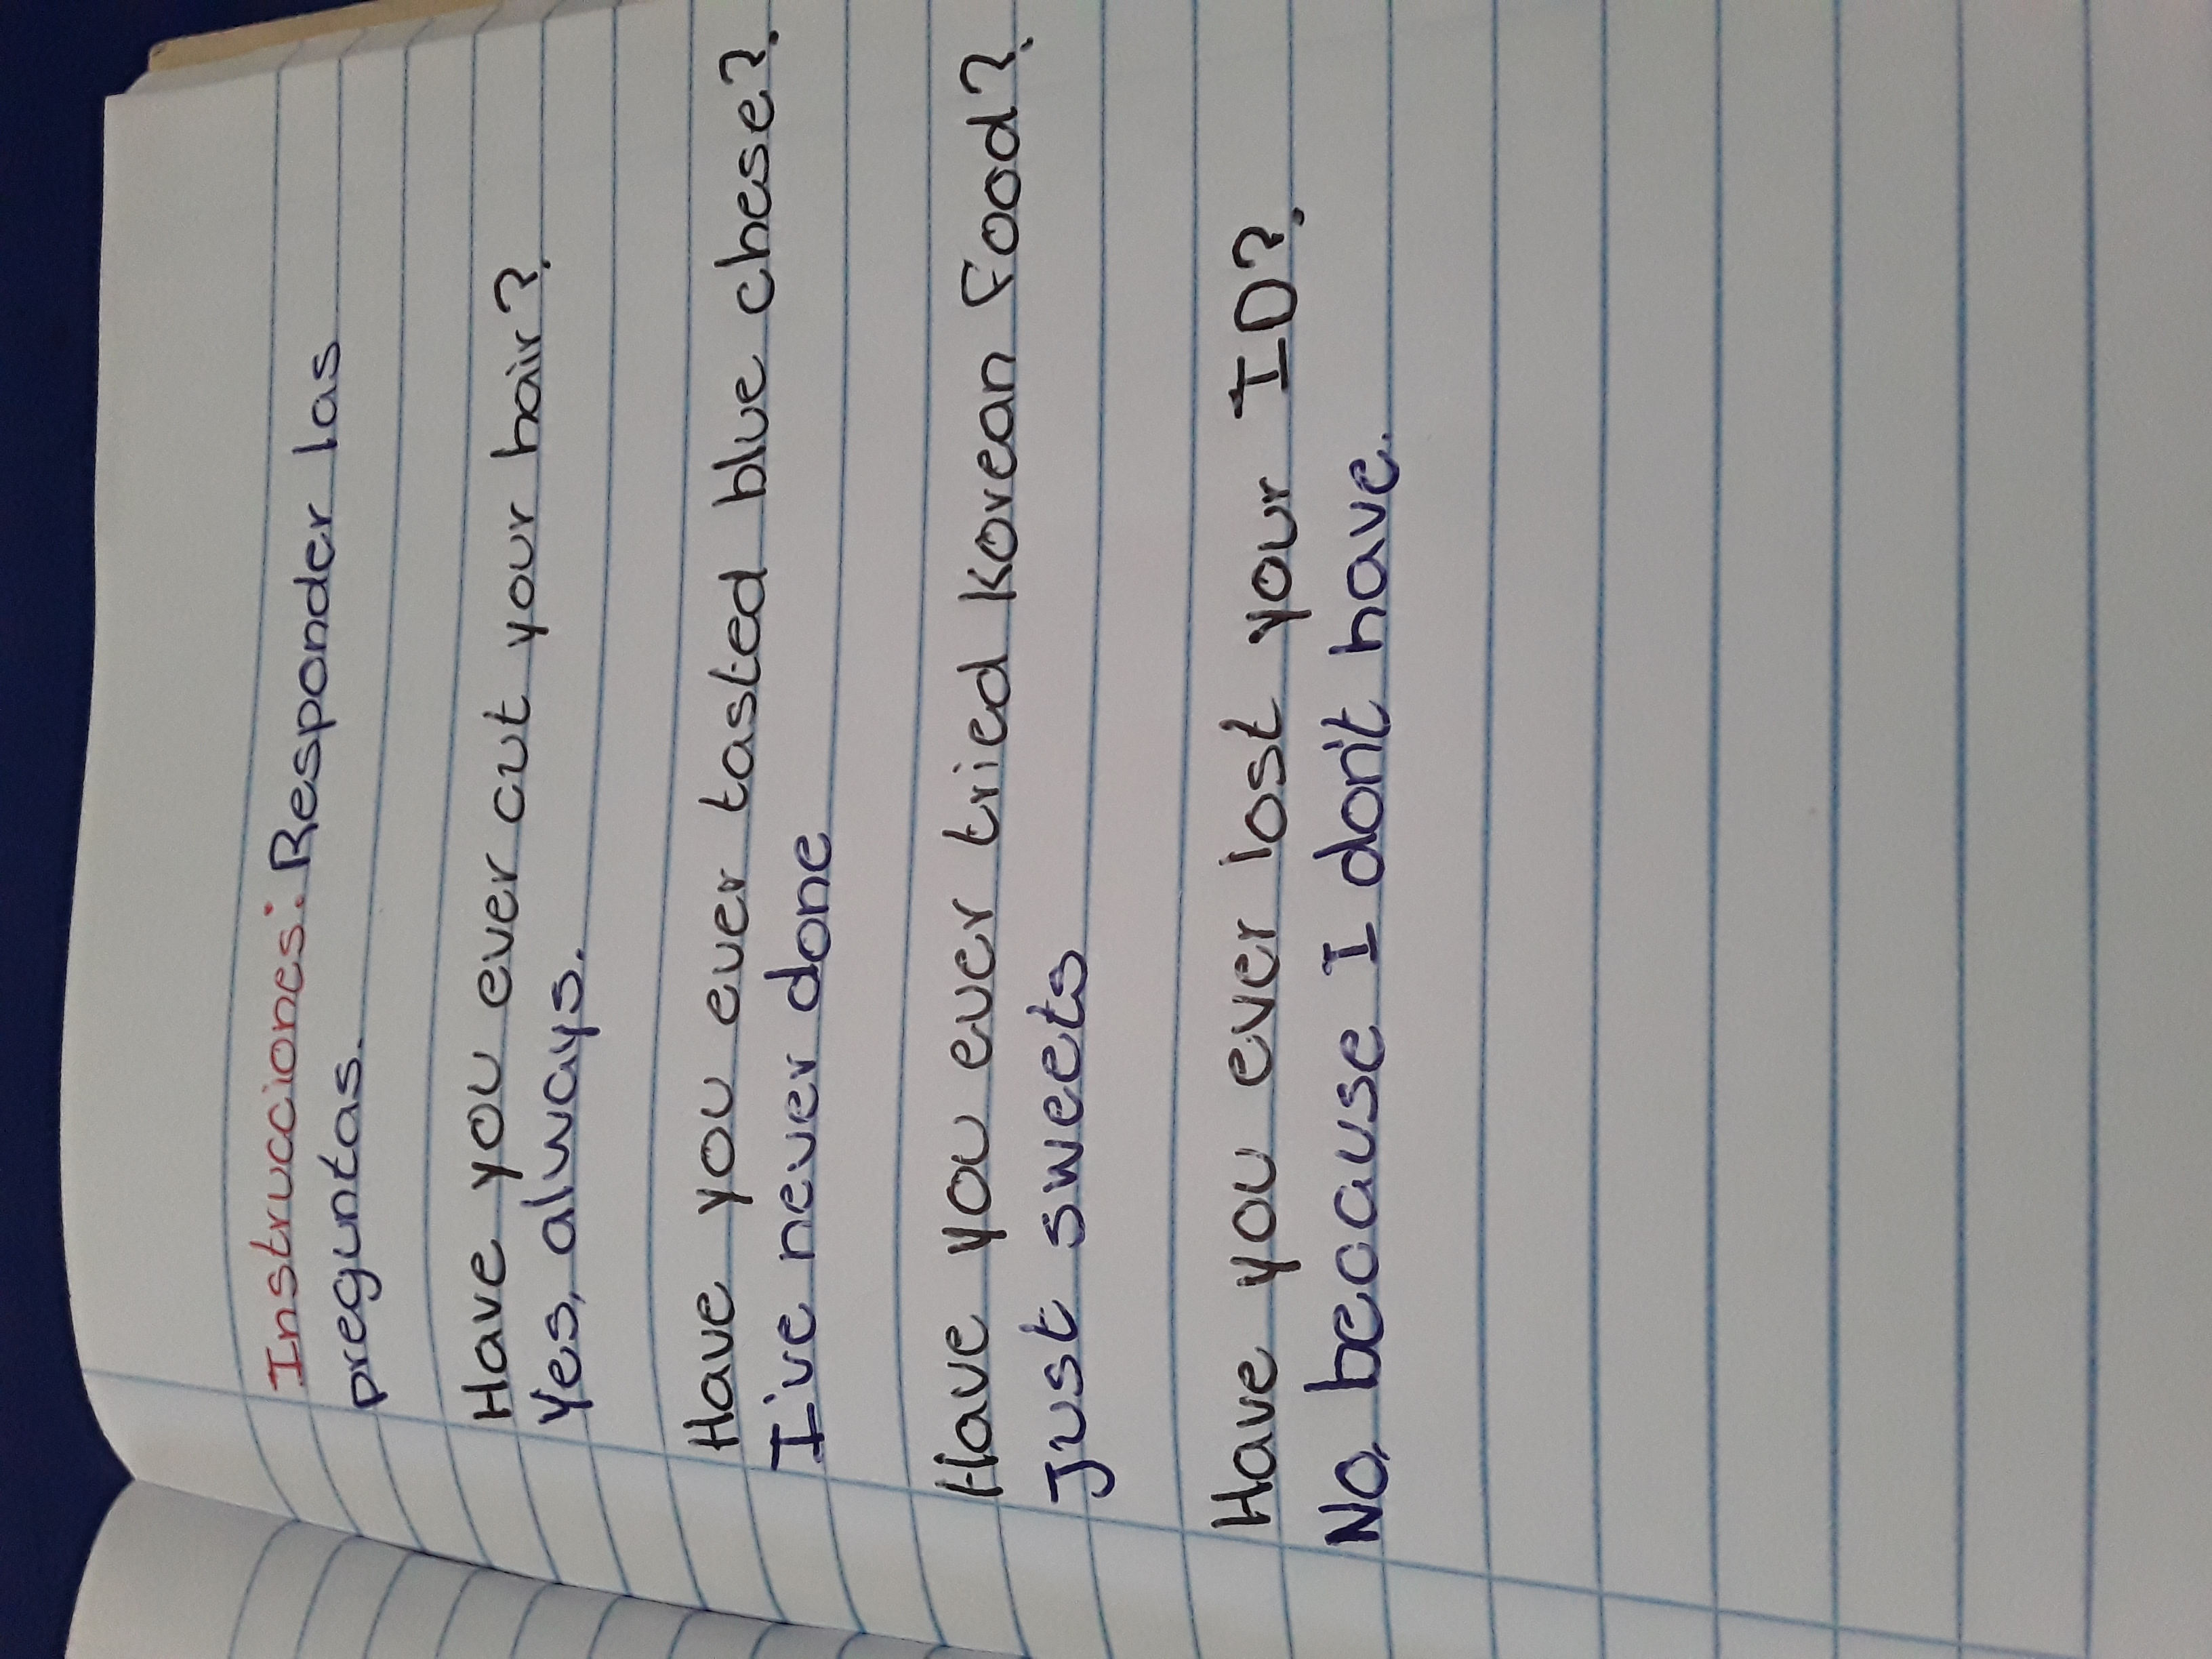 Instrucciones: Responder las
preguntas.
Have you ever cut your hair?
Yes, always.
Have you ever tasted blue chese?
I've never done
Have you ever tried Korean food?
Just sweets
Have you ever lost your ID?
No, because I don't have.